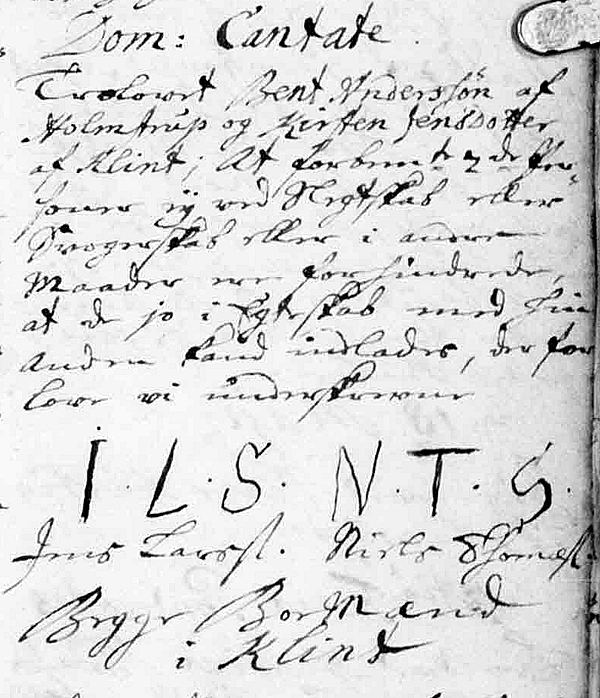 Dom: Cantate.
Trolovet Bent Anderssøn af
Holmstrup og Kirsten Jensdotter
af Klint; At forbem:te 2de Per-
soner ey ved Slegtskab eller
Svogerskab eller i andre
Maader ere forhindrede,
at de jo i Egteskab med hin
anden kand indlades, der for
love vi underskrevne
I. L. S. N. T. S.
Jens Larss:. Niels Thomæs:.
Begge Boe Mænd
i Klint